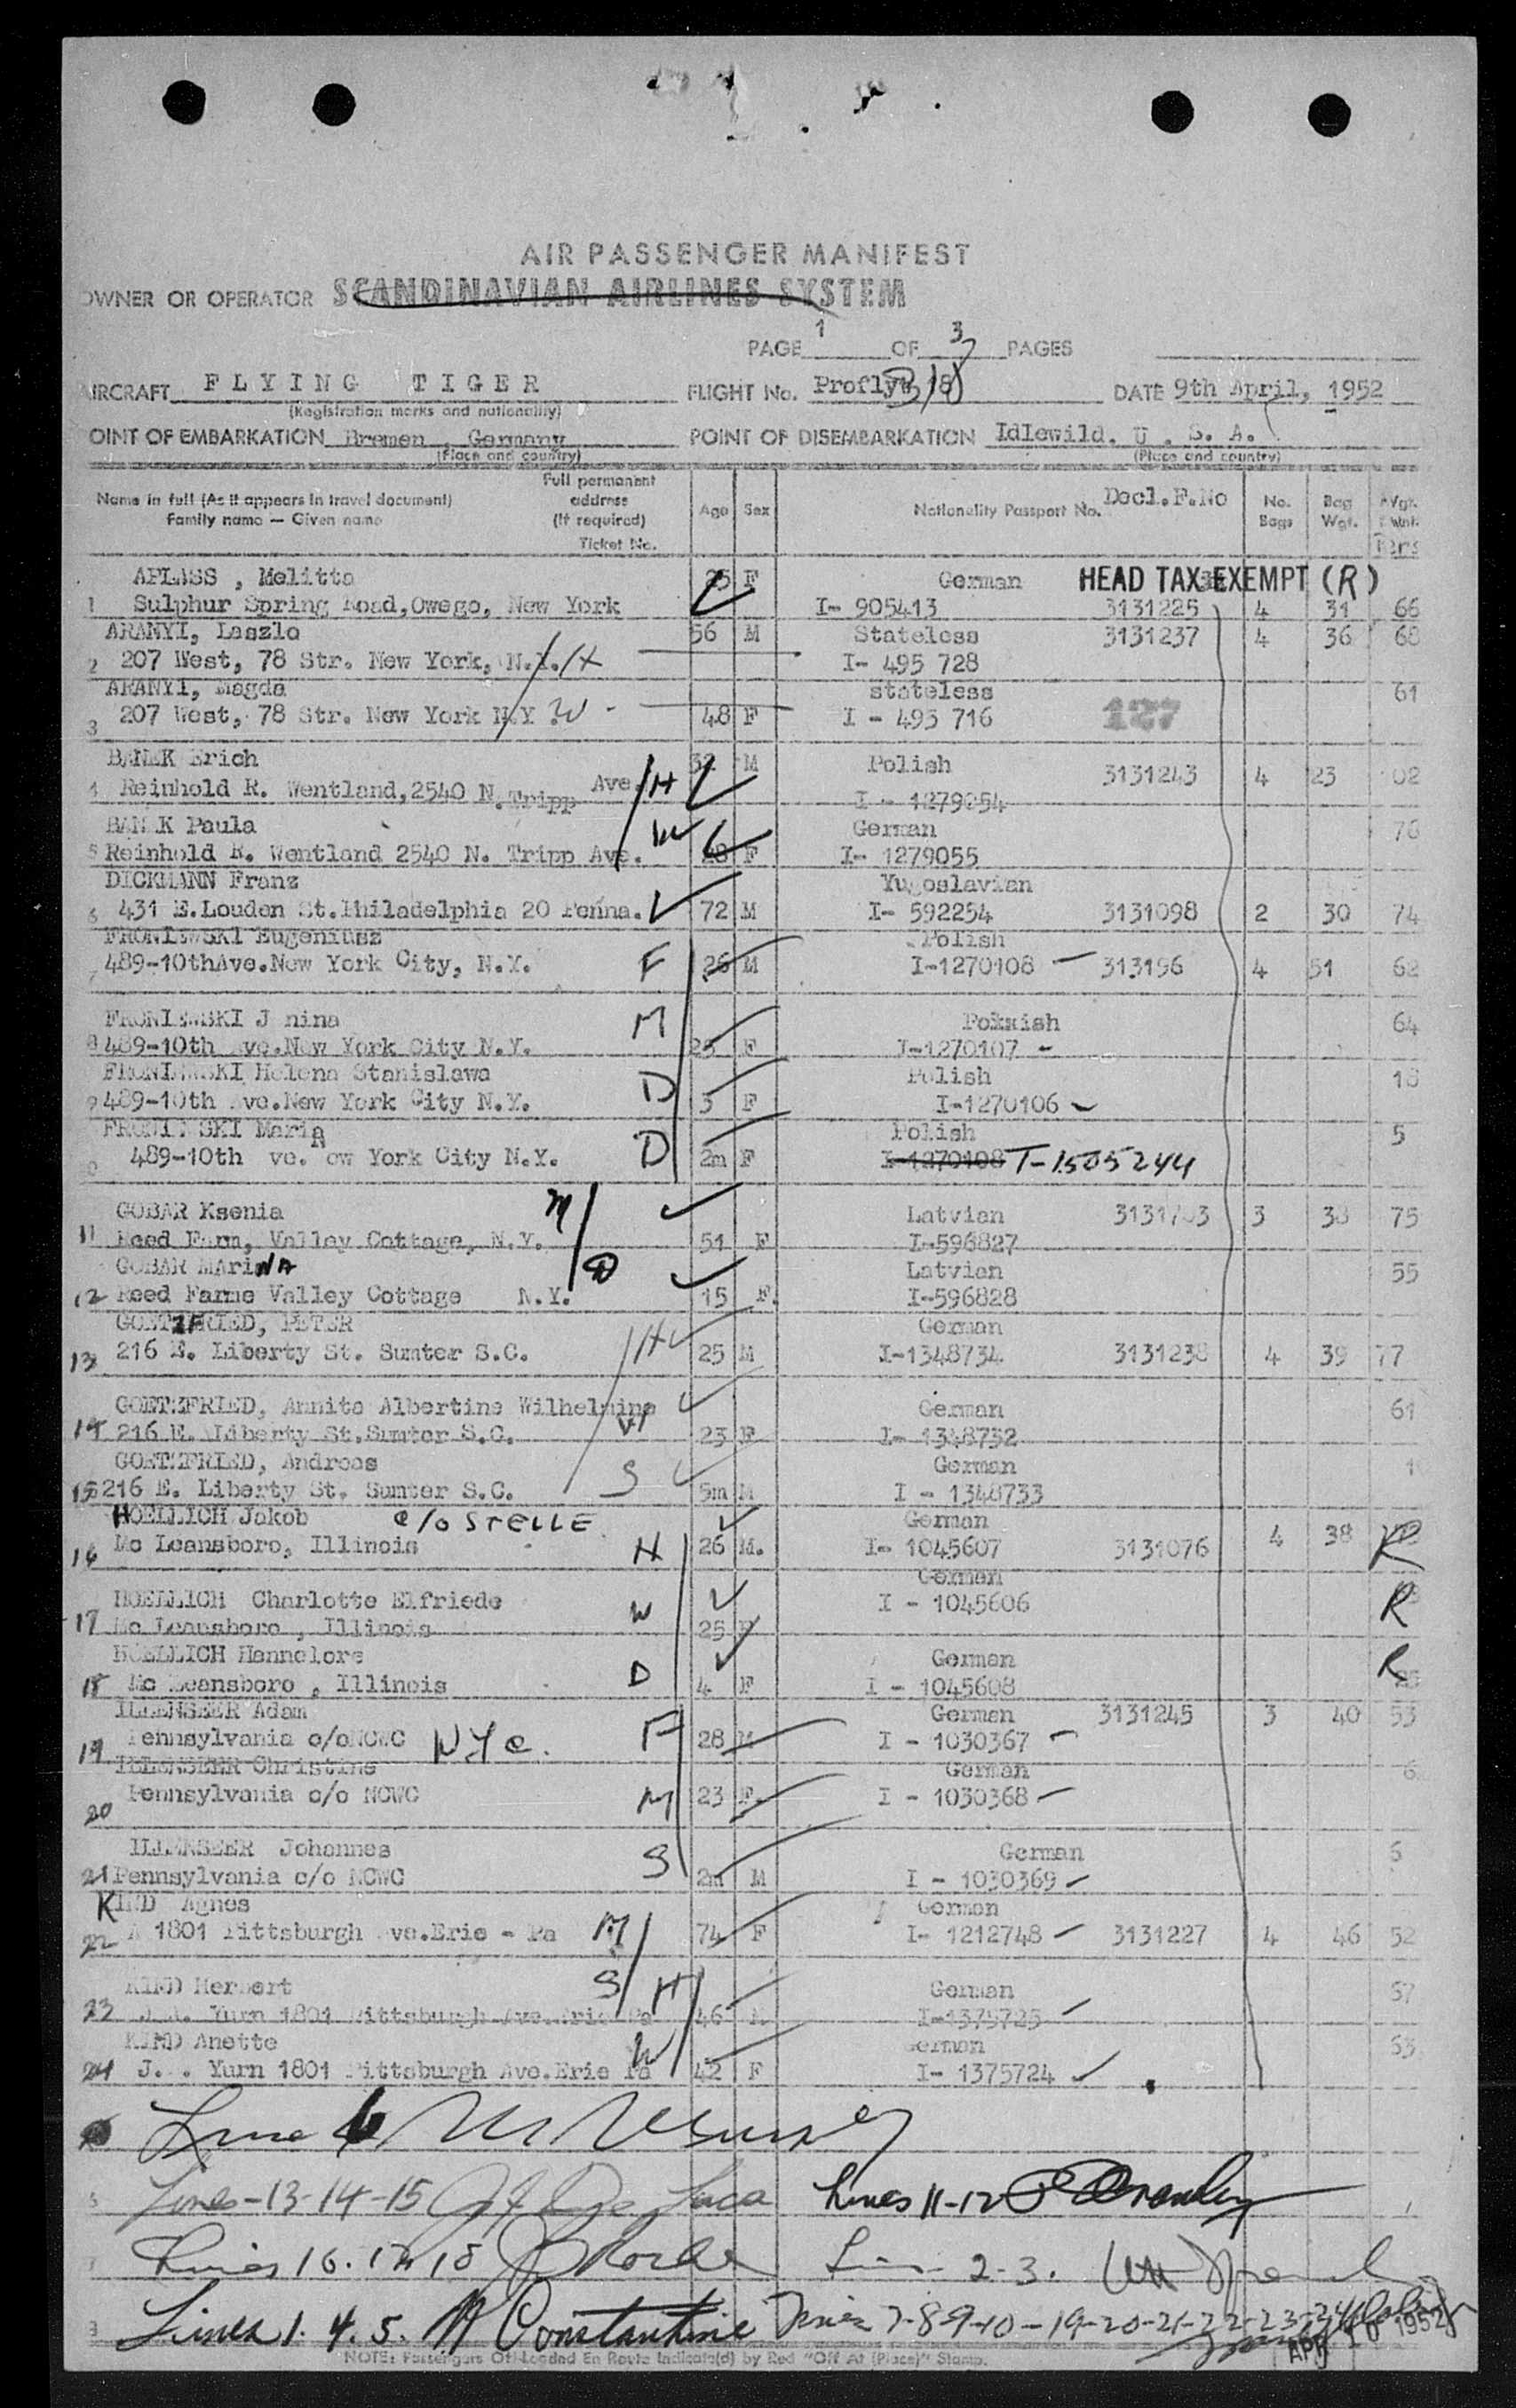 AIR PASSENGER MANIFEST
OWNER OR OPERATOR SCANDINAVIAN AIRLINES SYSTEM
PAGE 1 OF 3 PAGES
AIRCRAFT FLYING TIGER FLIGHT No. DATE 9th April, 1952
(Registration marks and nationality)
OINT OF EMBARKATION Bremen, Germany POINT OF DISEMBARKATION Idlewild, U. S. A.
(Place and country) (Place and country)
Name in full (As it appears in travel document) Full permanent address (If required) Age Sex Nationality Passport No. Decl.F.No No. Bags Bag Wgt.
Family name — Given name Ticket No.
APLASS, Melitta 25 F German HEAD TAX EXEMPT (R)
1 Sulphur Spring Road, Owego, New York I- 905413 3131225 4 31 66
ARANYI, Laszlo 56 M Stateless 3131237 4 36 60
2 207 West, 78 Str. New York, N.Y. H I- 495 728
ARANYI, Magda stateless 61
3 207 West, 78 Str. New York N.Y. W 48 F I - 495 716 127
BANEK Erich 32 M Polish 3131243 4 23 102
4 Reinhold R. Wentland, 2540 N. Tripp Ave. H I - 1279054
BANEK Paula W German 76
5 Reinhold R. Wentland 2540 N. Tripp Ave. 28 F I- 1279055
DICKMANN Franz Yugoslavian
6 431 E.Louden St.Philadelphia 20 Penna. 72 M I- 592254 3131098 2 30 74
FRONIEWSKI Eugeniusz Polish
489-10thAve.New York City, N.Y. F 26 M I-1270108 313196 4 51 62
FRONIEWSKI J nina M Polish 64
8 489-10th Ave.New York City N.Y. 25 F I-1270107
FRONIEWSKI Helena Stanislawa D Polish 18
9 489-10th Ave.New York City N.Y. 3 F I-1270106
FRONIEWSKI Maria Polish 5
489-10th ve. ew York City N.Y. D 2m F I-1270108 T-1505244
GOBAR Ksenia M Latvian 3 38 75
11 Reed Farm, Valley Cottage, N.Y. 51 F I-596827
GOBAR MAriNA D Latvian 55
12 Reed Farms Valley Cottage N.Y. 15 F. I-596828
GOETZFRIED, PETER German
13 216 E. Liberty St. Sumter S.C. H 25 M I-1348734 3131238 4 39 77
GOETZFRIED, Annita Albertine Wilhelmine German 61
14 216 E. Liberty St.Sumter S.C. W 23 F I- 1348732
GOETZFRIED, Andreas German
15 216 E. Liberty St. Sumter S.C. S 5m M I - 1348733
HOELLICH Jakob c/o STELLE German
16 Mc Leansboro, Illinois H 26 M. I- 1045607 3131076 4 38 R
HOELLICH Charlotte Elfriede German
17 Mc Leansboro, Illinois W 25 F I - 1045606 R
HOELLICH Hannelore German
18 Mc Leansboro, Illinois D 4 F I - 1045608 R
ILLENSEER Adam German 3131245 3 40 53
19 Pennsylvania c/oNCWC NYC. F 28 M I - 1030367
ILLENSEER Christine German
20 Pennsylvania c/o NCWC M 23 F. I - 1030368
ILLENSEER Johannes S German 6
21 Pennsylvania c/o NCWC 2m M I - 1030369
KIND Agnes German
22 A 1801 Pittsburgh ve.Erie - Pa M 74 F I- 1212748 3131227 4 46 52
KIND Herbert S H German 57
23 Yurn 1801 Pittsburgh Ave.Erie Pa 46 M I-1375725
KIND Anette W German 63
24 J. . Yurn 1801 Pittsburgh Ave.Erie Pa 42 F I- 1375724
Line 6
Lines-13-14-15 Lines 11-12
Lines 16. 17 18 2-3.
Lines 1. 4. 5. M Constantine Lines 7-8-9-10-19-20-21-22-23-24
APR 10 1952
NOTE: Passengers Off-Loaded En Route Indicate(d) by Red "Off At (Place)" Stamp.